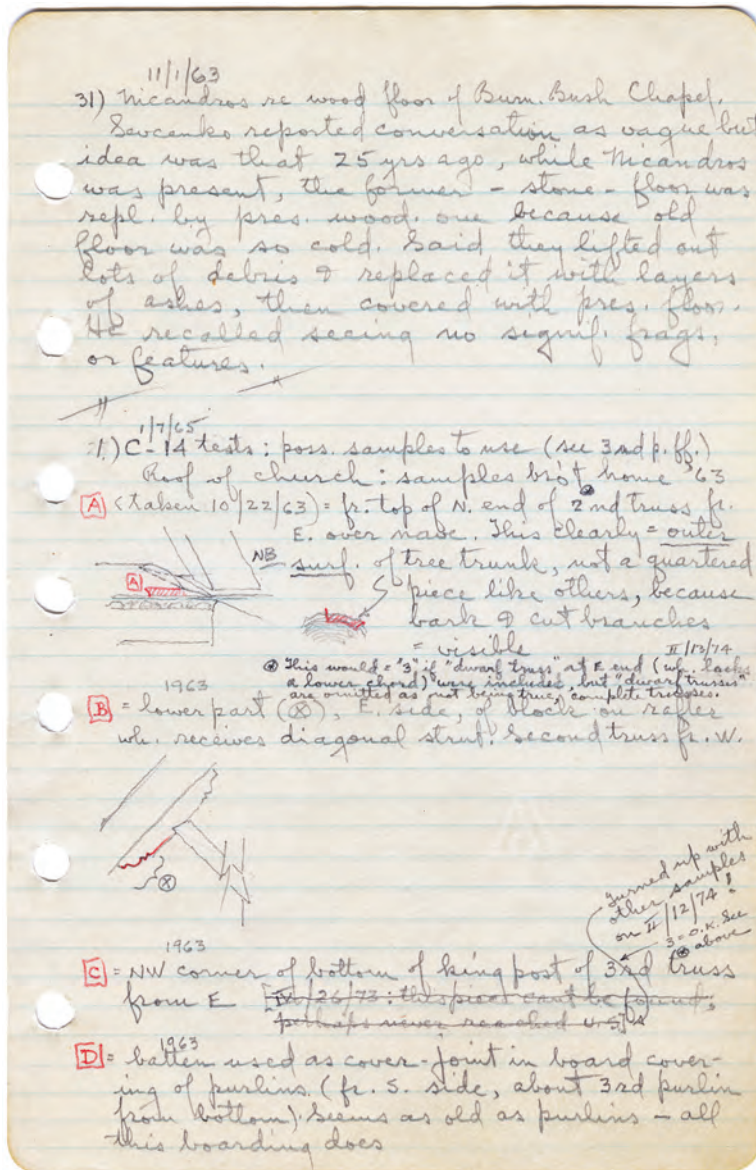 11/1/63
31) Nicandros re wood floor of Burn. Bush Chapel.
Sevcenko reported conversation as vague but
idea was that 25 yrs ago, while Nicandros
was present, the former - stone - floor was
repl. by pres. wood. one because old
floor was so cold. Said they lifted out
lots of debris & replaced it with layers
of ashes, then covered with pres. floor.
He recalled seeing no signif. frags,
or features.
1/7/65
1.) C-14 tests: poss. samples to use (see 3rd p. ff.)
Roof of church: samples bro't home '63
A (taken 10/22/63) = fr. top of N. end of 2nd truss fr.
E. over nave. This clearly = outer
NB surf. of tree trunk, not a quartered
A
piece like others, because
bark & cut branches
= visible
II/13/74
⊗ This would = "3" if "dwarf truss" at E end (wh. lacks
a lower chord) were included, but "dwarf trusses"
are omitted as not being true, complete trusses.
1963
B = lower part (⊗), E. side, of block on rafter
wh. receives diagonal strut. Second truss fr. W.
⊗
Turned up with
other samples
on II/12/74!
3 = O.K. See
⊗ above
1963
C = NW corner of bottom of king post of 3rd truss
from E [IV/26/73: this piece can't be found,
perhaps never reached U.S.]
1963
D = batten used as cover-joint in board cover-
ing of purlins (fr. S. side, about 3rd purlin
from bottom). Seems as old as purlins - all
this boarding does